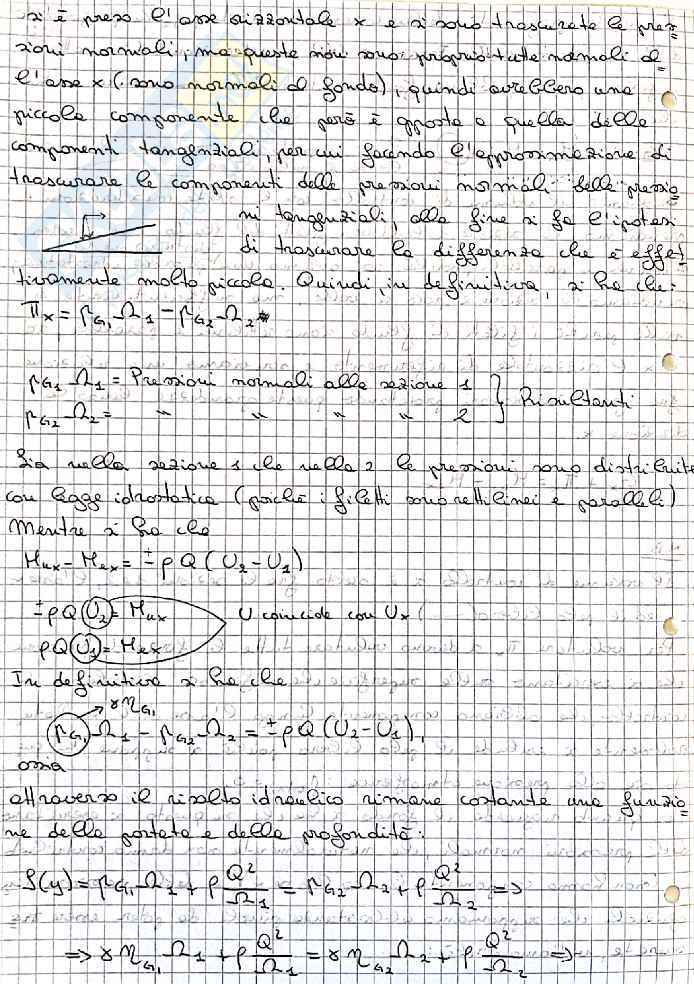 si è preso l'asse orizzontale x e si sono trascurate le pres=
sioni normali, ma queste non sono proprio tutte normali al=
l'asse x (sono normali al fondo), quindi avrebbero una
piccola componente che però è opposta a quella delle
componenti tangenziali, per cui facendo l'approssimazione di
trascurare le componenti delle pressioni normali delle pressio=
ni tangenziali, alla fine si fa l'ipotesi
di trascurare la differenza che è effet=
tivamente molto piccola. Quindi, in definitiva, si ha che:
Πx = pG1 Ω1 - pG2 Ω2
pG1 Ω1 = Pressioni normali alla sezione 1 } Risultanti
pG2 Ω2 = " " " " 2
Sia nella sezione 1 che nella 2 le pressioni sono distribuite
con legge idrostatica (poichè i filetti sono rettilinei e paralleli)
Mentre si ha che
Mux - Mex = ± ρQ (U2 - U1)
± ρQ U2 = Mux U coincide con Ux
ρQ U1 = Mex
In definitiva si ha che
γηG1
pG1 Ω1 - pG2 Ω2 = ± ρQ (U2 - U1),
ossia
attraverso il risalto idraulico rimane costante una funzio=
ne della portata e della profondità:
S(y) = pG1 Ω1 + ρ Q²/Ω1 = pG2 Ω2 + ρ Q²/Ω2 ⇒
⇒ γ ηG1 Ω1 + ρ Q²/Ω1 = γ ηG2 Ω2 + ρ Q²/Ω2 ⇒